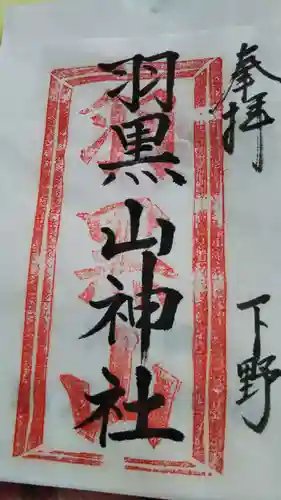 奉拝
下野
羽黒山神社